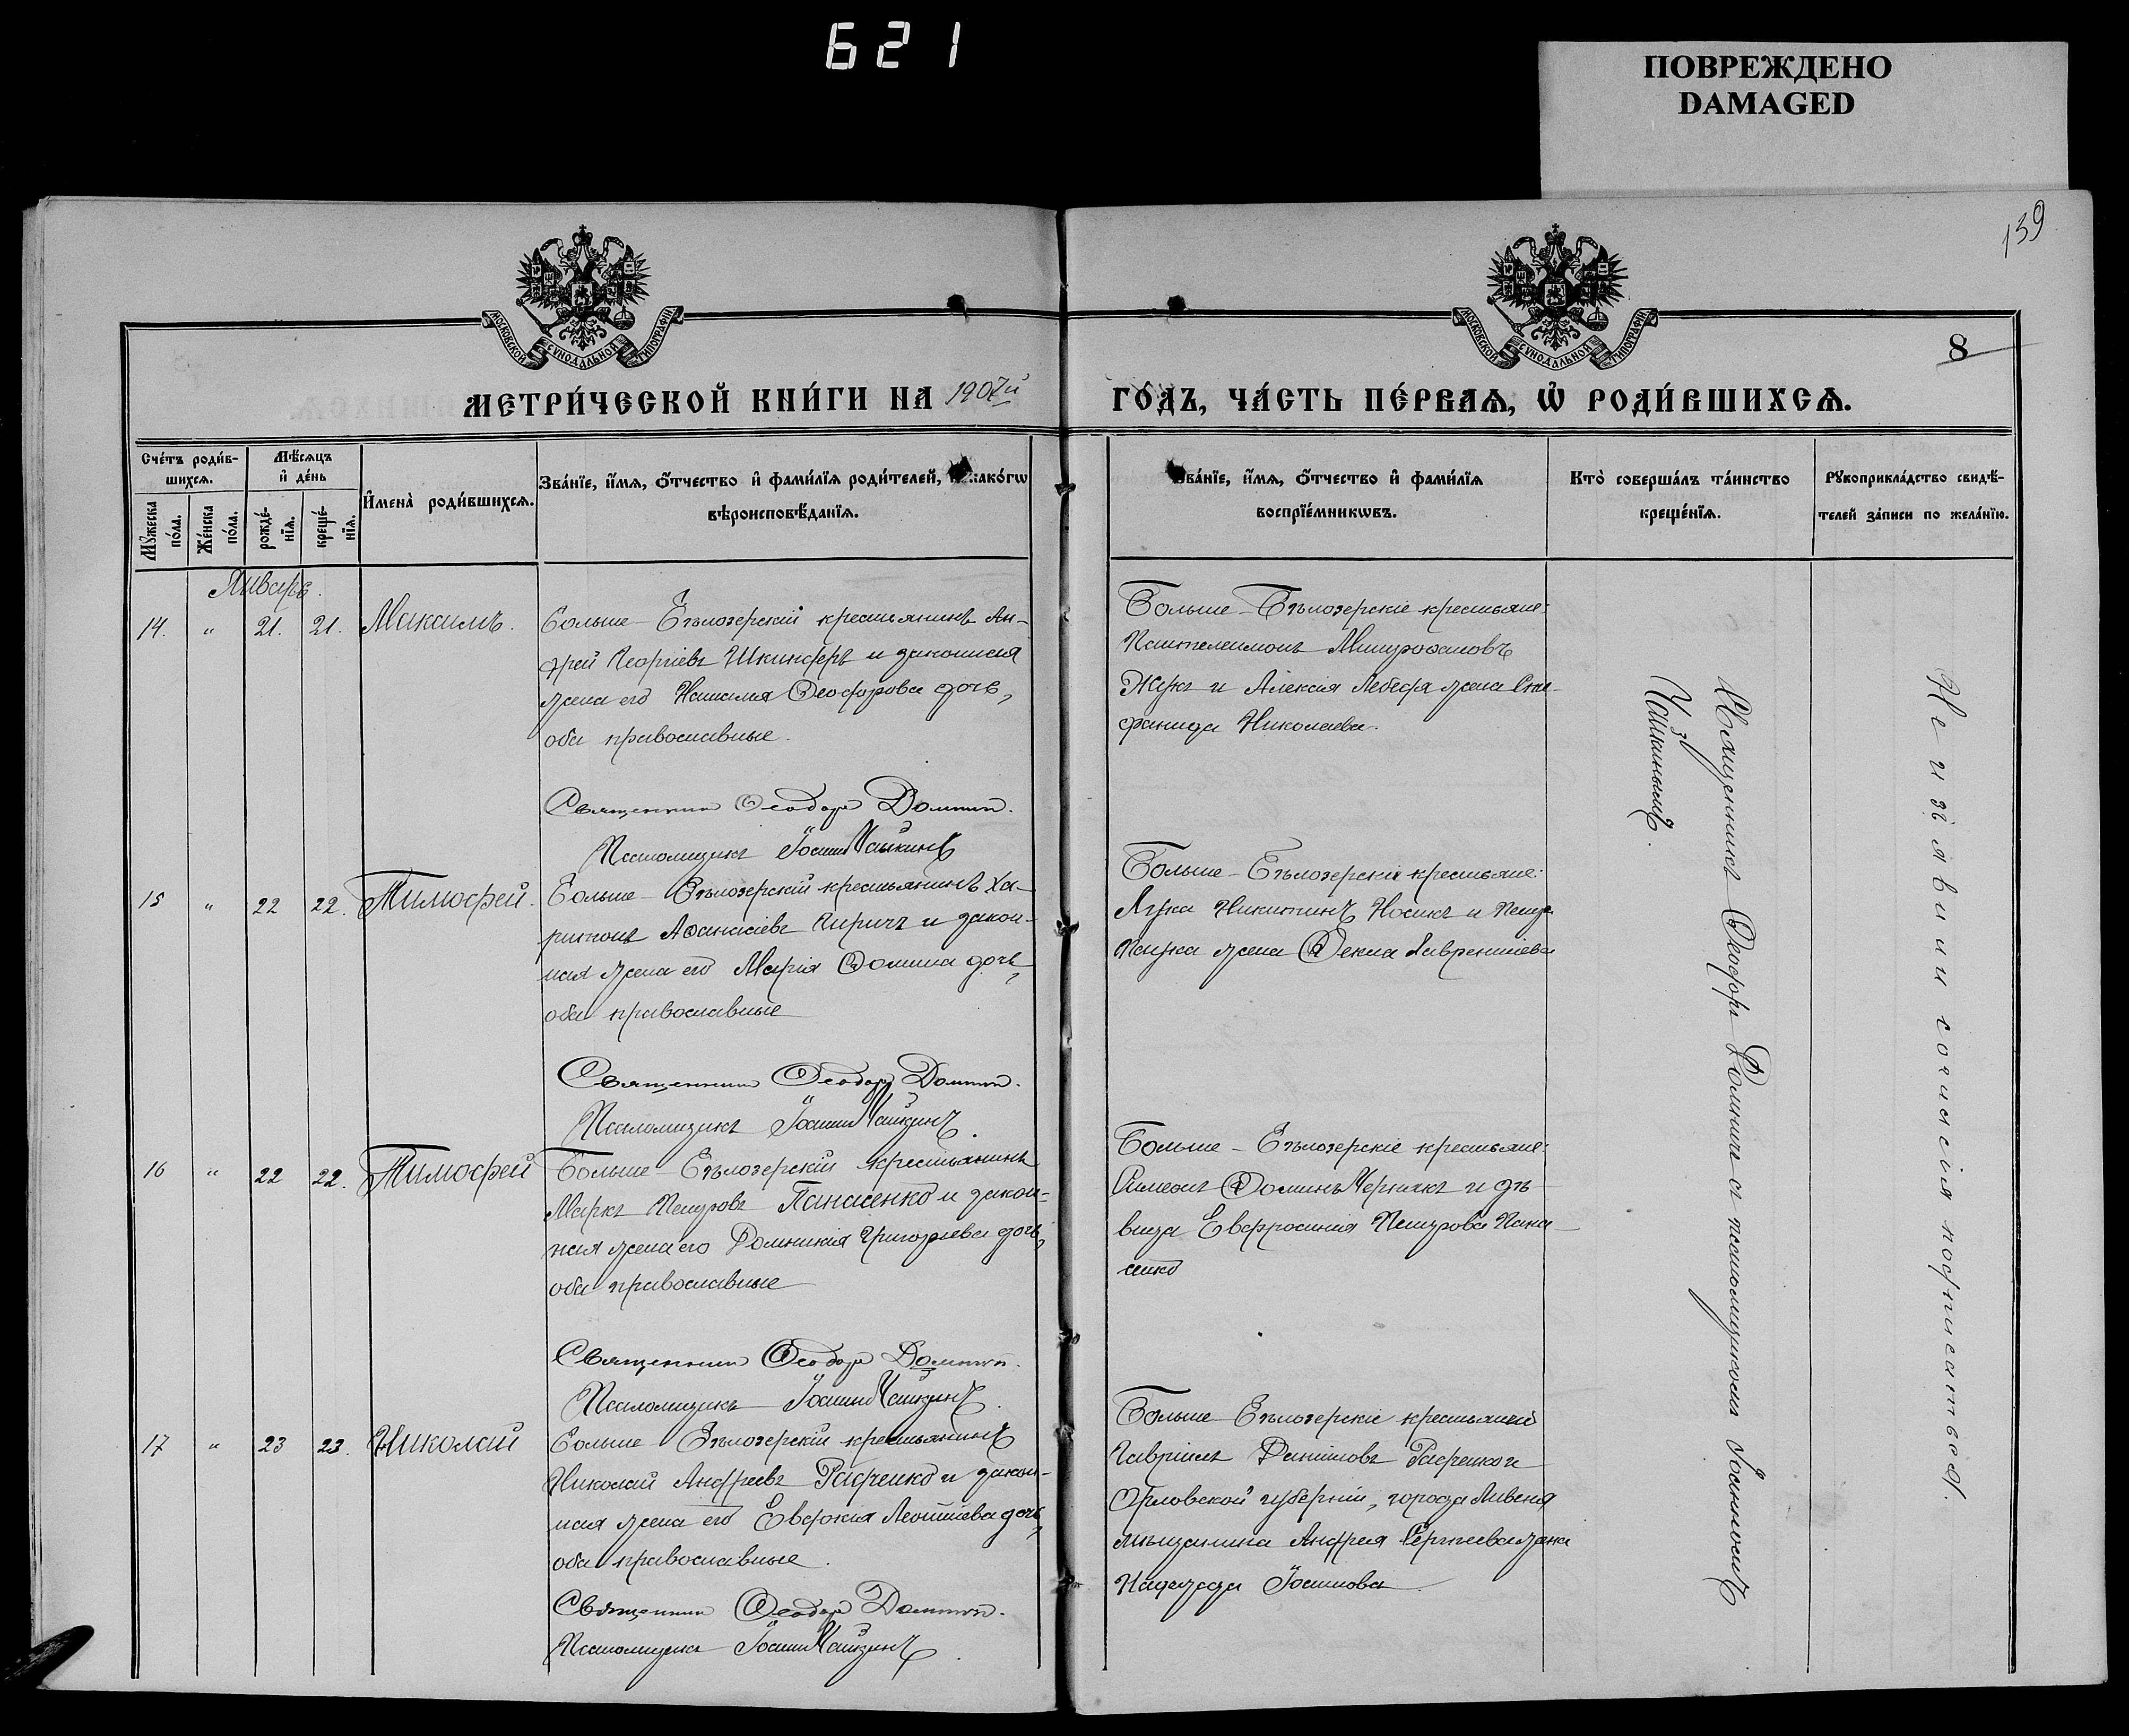 621
ПОВРЕЖДЕНО
DAMAGED
139
МОСКОВСКОЙ СУНОДАЛЬНОЙ ТИПОГРАФІИ
МОСКОВСКОЙ СУНОДАЛЬНОЙ ТИПОГРАФІИ
8
МЕТРИ́ЧЕСКОЙ КНИ́ГИ НА 1907й
ГО́ДЪ, ЧА́СТЬ ПЕ́РВАѦ, Ѡ҆ РОДИ́ВШИХСѦ.
Сче́тъ роди́в-
шихсѧ.
Мѣ́сѧцъ
и҆ де́нь
Мꙋ́жеска
по́ла.
Же́нска
по́ла.
рожде́-
нїѧ.
креще́-
нїѧ.
И҆мена̀ роди́вшихсѧ.
Зва́нїе, и҆́мѧ, ѻ҆́тчество и҆ фами́лїѧ роди́телей, како́гѡ
вѣроисповѣ́данїѧ.
Зва́нїе, и҆́мѧ, ѻ҆́тчество и҆ фами́лїѧ
воспрїе́мникѡвъ.
Кто̀ соверша́лъ та́инство
креще́нїѧ.
Рꙋкоприкла́дство свидѣ́-
телей за́писи по жела́нїю.
Январь.
14. " 21. 21. Максимъ.
Больше-Бѣлозерскій крестьянинъ Ан-
дрей Георгіевъ Шкиндеръ и законная
жена его Наталія Ѳеодорова дочь,
оба православные.
Священникъ Ѳеодоръ Домнич.
Псаломщикъ Іоаннъ Чайкинъ
Больше-Бѣлозерскіе крестьяне:
Пантелеимонъ Митрофановъ
Жукъ и Алексія Лебедя жена Сте-
фанида Николаева.
15 " 22 22. Тимофей.
Больше-Бѣлозерскій крестьянинъ Ха-
ритонъ Аѳанасіевъ Киричъ и закон-
ная жена его Марія Ѳомина дочь,
оба православные
Священникъ Ѳеодоръ Домнич.
Псаломщикъ Іоаннъ Чайкинъ.
Больше-Бѣлозерскіе крестьяне:
Лука Никитинъ Носикъ и Петра
Паука жена Ѳекла Лаврентіева
16 " 22 22. Тимофей
Больше-Бѣлозерскій крестьянинъ
Маркъ Петровъ Панасенко и закон-
ная жена его Домникія Григоріева дочь,
оба православные
Священникъ Ѳеодоръ Домнич.
Псаломщикъ Іоаннъ Чайкинъ.
Больше-Бѣлозерскіе крестьяне:
Симеонъ Ѳоминъ Чернякъ и дѣ-
вица Евфросинія Петрова Пана-
сенко
17 " 23 23. Николай
Больше-Бѣлозерскій крестьянинъ
Николай Андреевъ Радченко и закон-
ная жена его Евдокія Леонтіева дочь,
оба православные.
Священникъ Ѳеодоръ Домнич.
Псаломщикъ Іоаннъ Чайкинъ.
Больше-Бѣлозерскіе крестьянинъ
Гавріилъ Даніиловъ Радченко и
Орловской губерніи, города Ливенъ
мѣщанина Андрея Сергѣева жена
Надежда Іоаннова
Священникъ Ѳеодоръ Домнич с псаломщикомъ Іоанномъ
Чайкинымъ.
Не изъявили согласія подписаться.